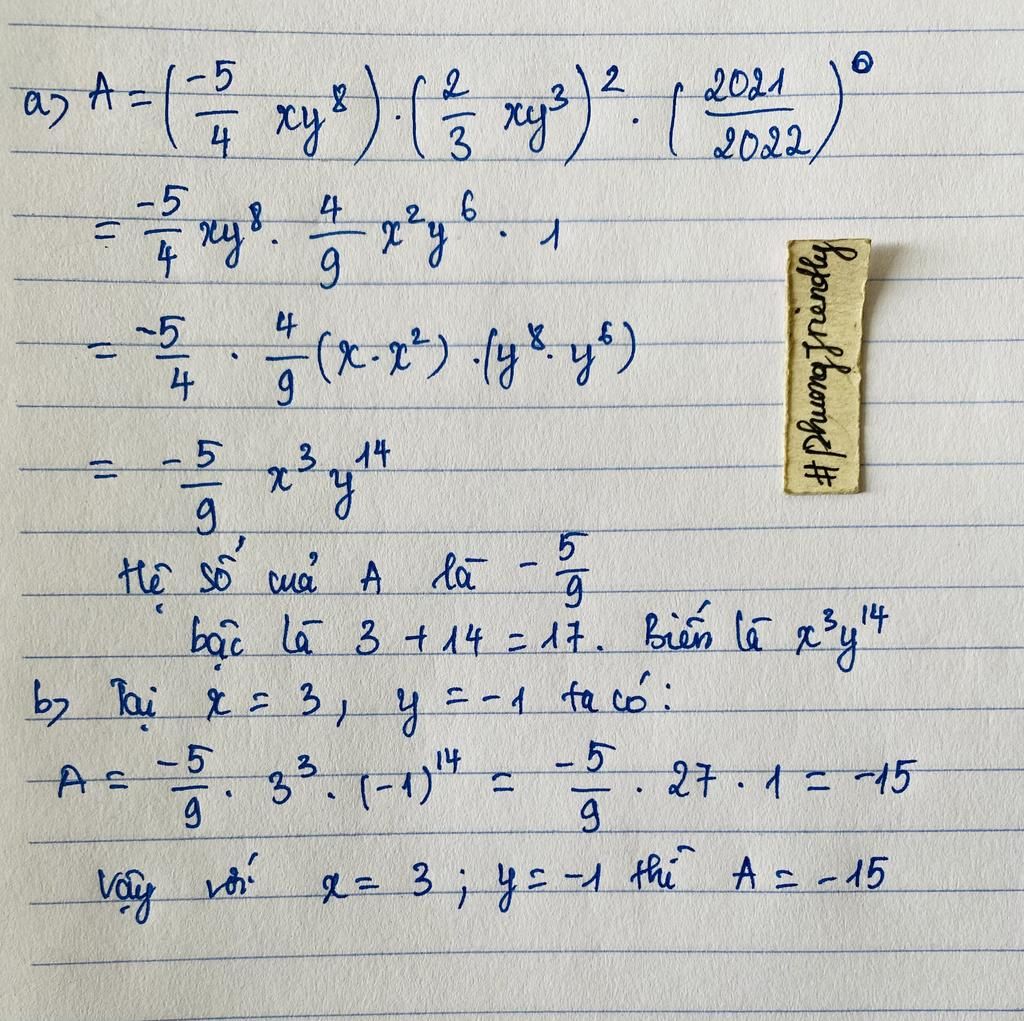 a) A = (-5/4 xy⁸) · (2/3 xy³)² · (2021/2022)⁰
= -5/4 xy⁸ · 4/9 x²y⁶ · 1
= -5/4 · 4/9 (x · x²) · (y⁸ · y⁶)
= -5/9 x³y¹⁴
Hệ số của A là -5/9
bậc là 3 + 14 = 17. Biến là x³y¹⁴
b) Tại x = 3, y = -1 ta có:
A = -5/9 · 3³ · (-1)¹⁴ = -5/9 · 27 · 1 = -15
Vậy với x = 3 ; y = -1 thì A = -15
#Phuongfriendly